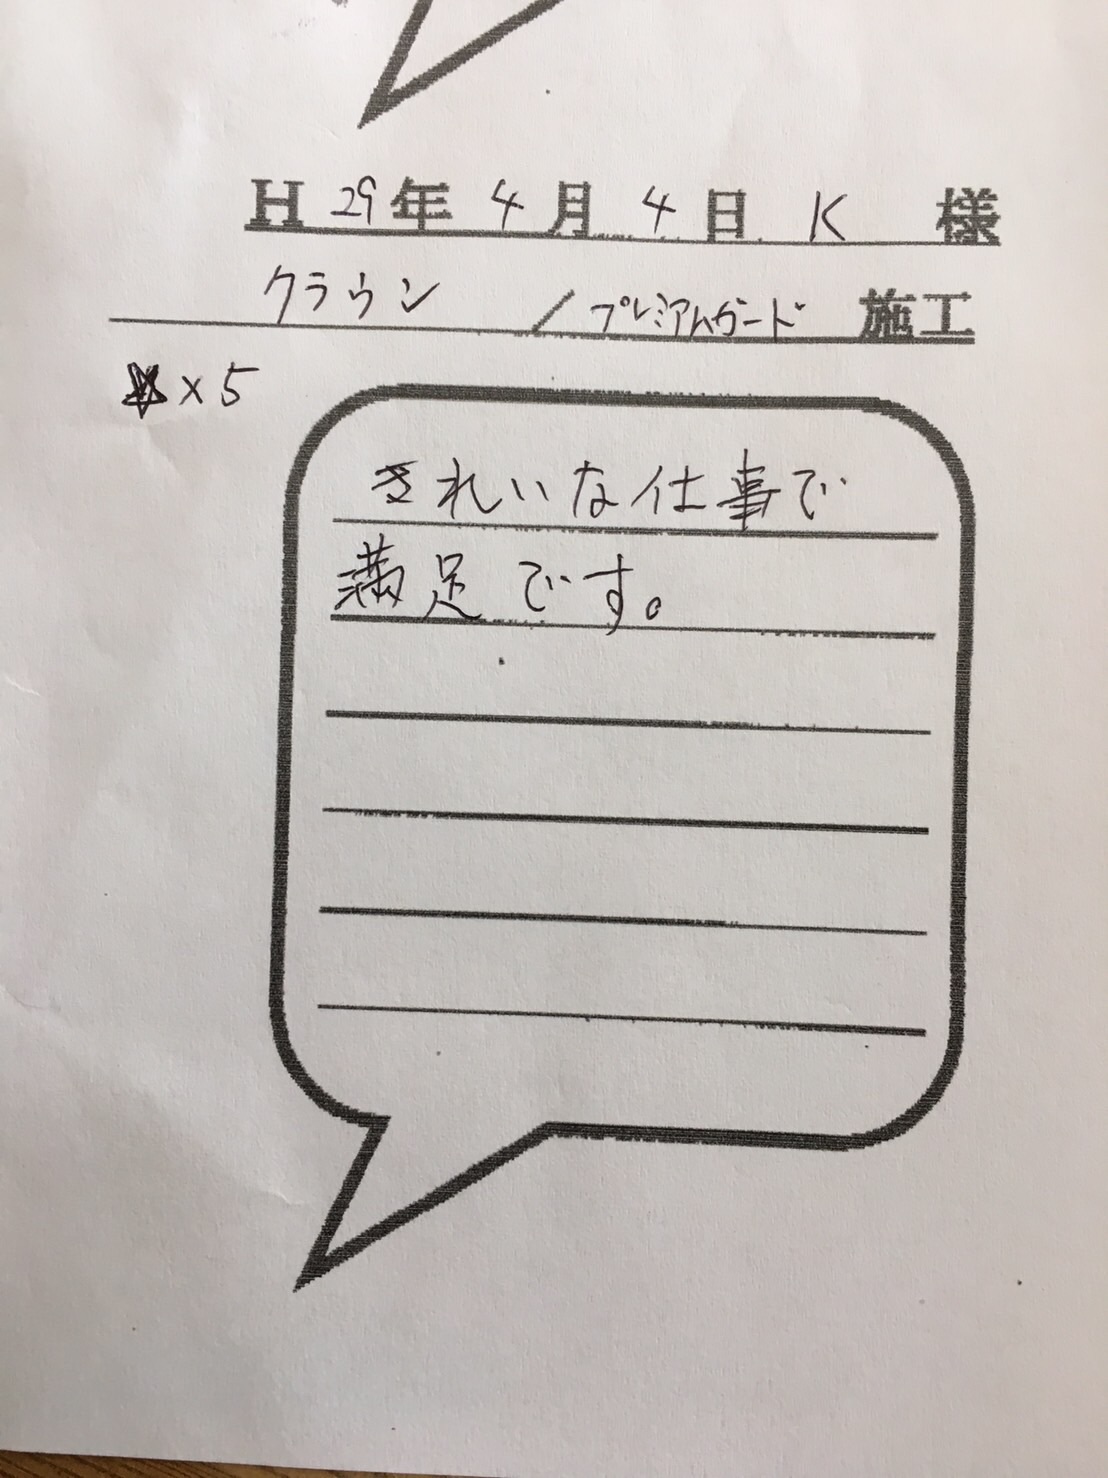 H 29年 4月 4日 K 様
クラウン / プレミアムガード 施工
★×5
きれいな仕事で
満足です。